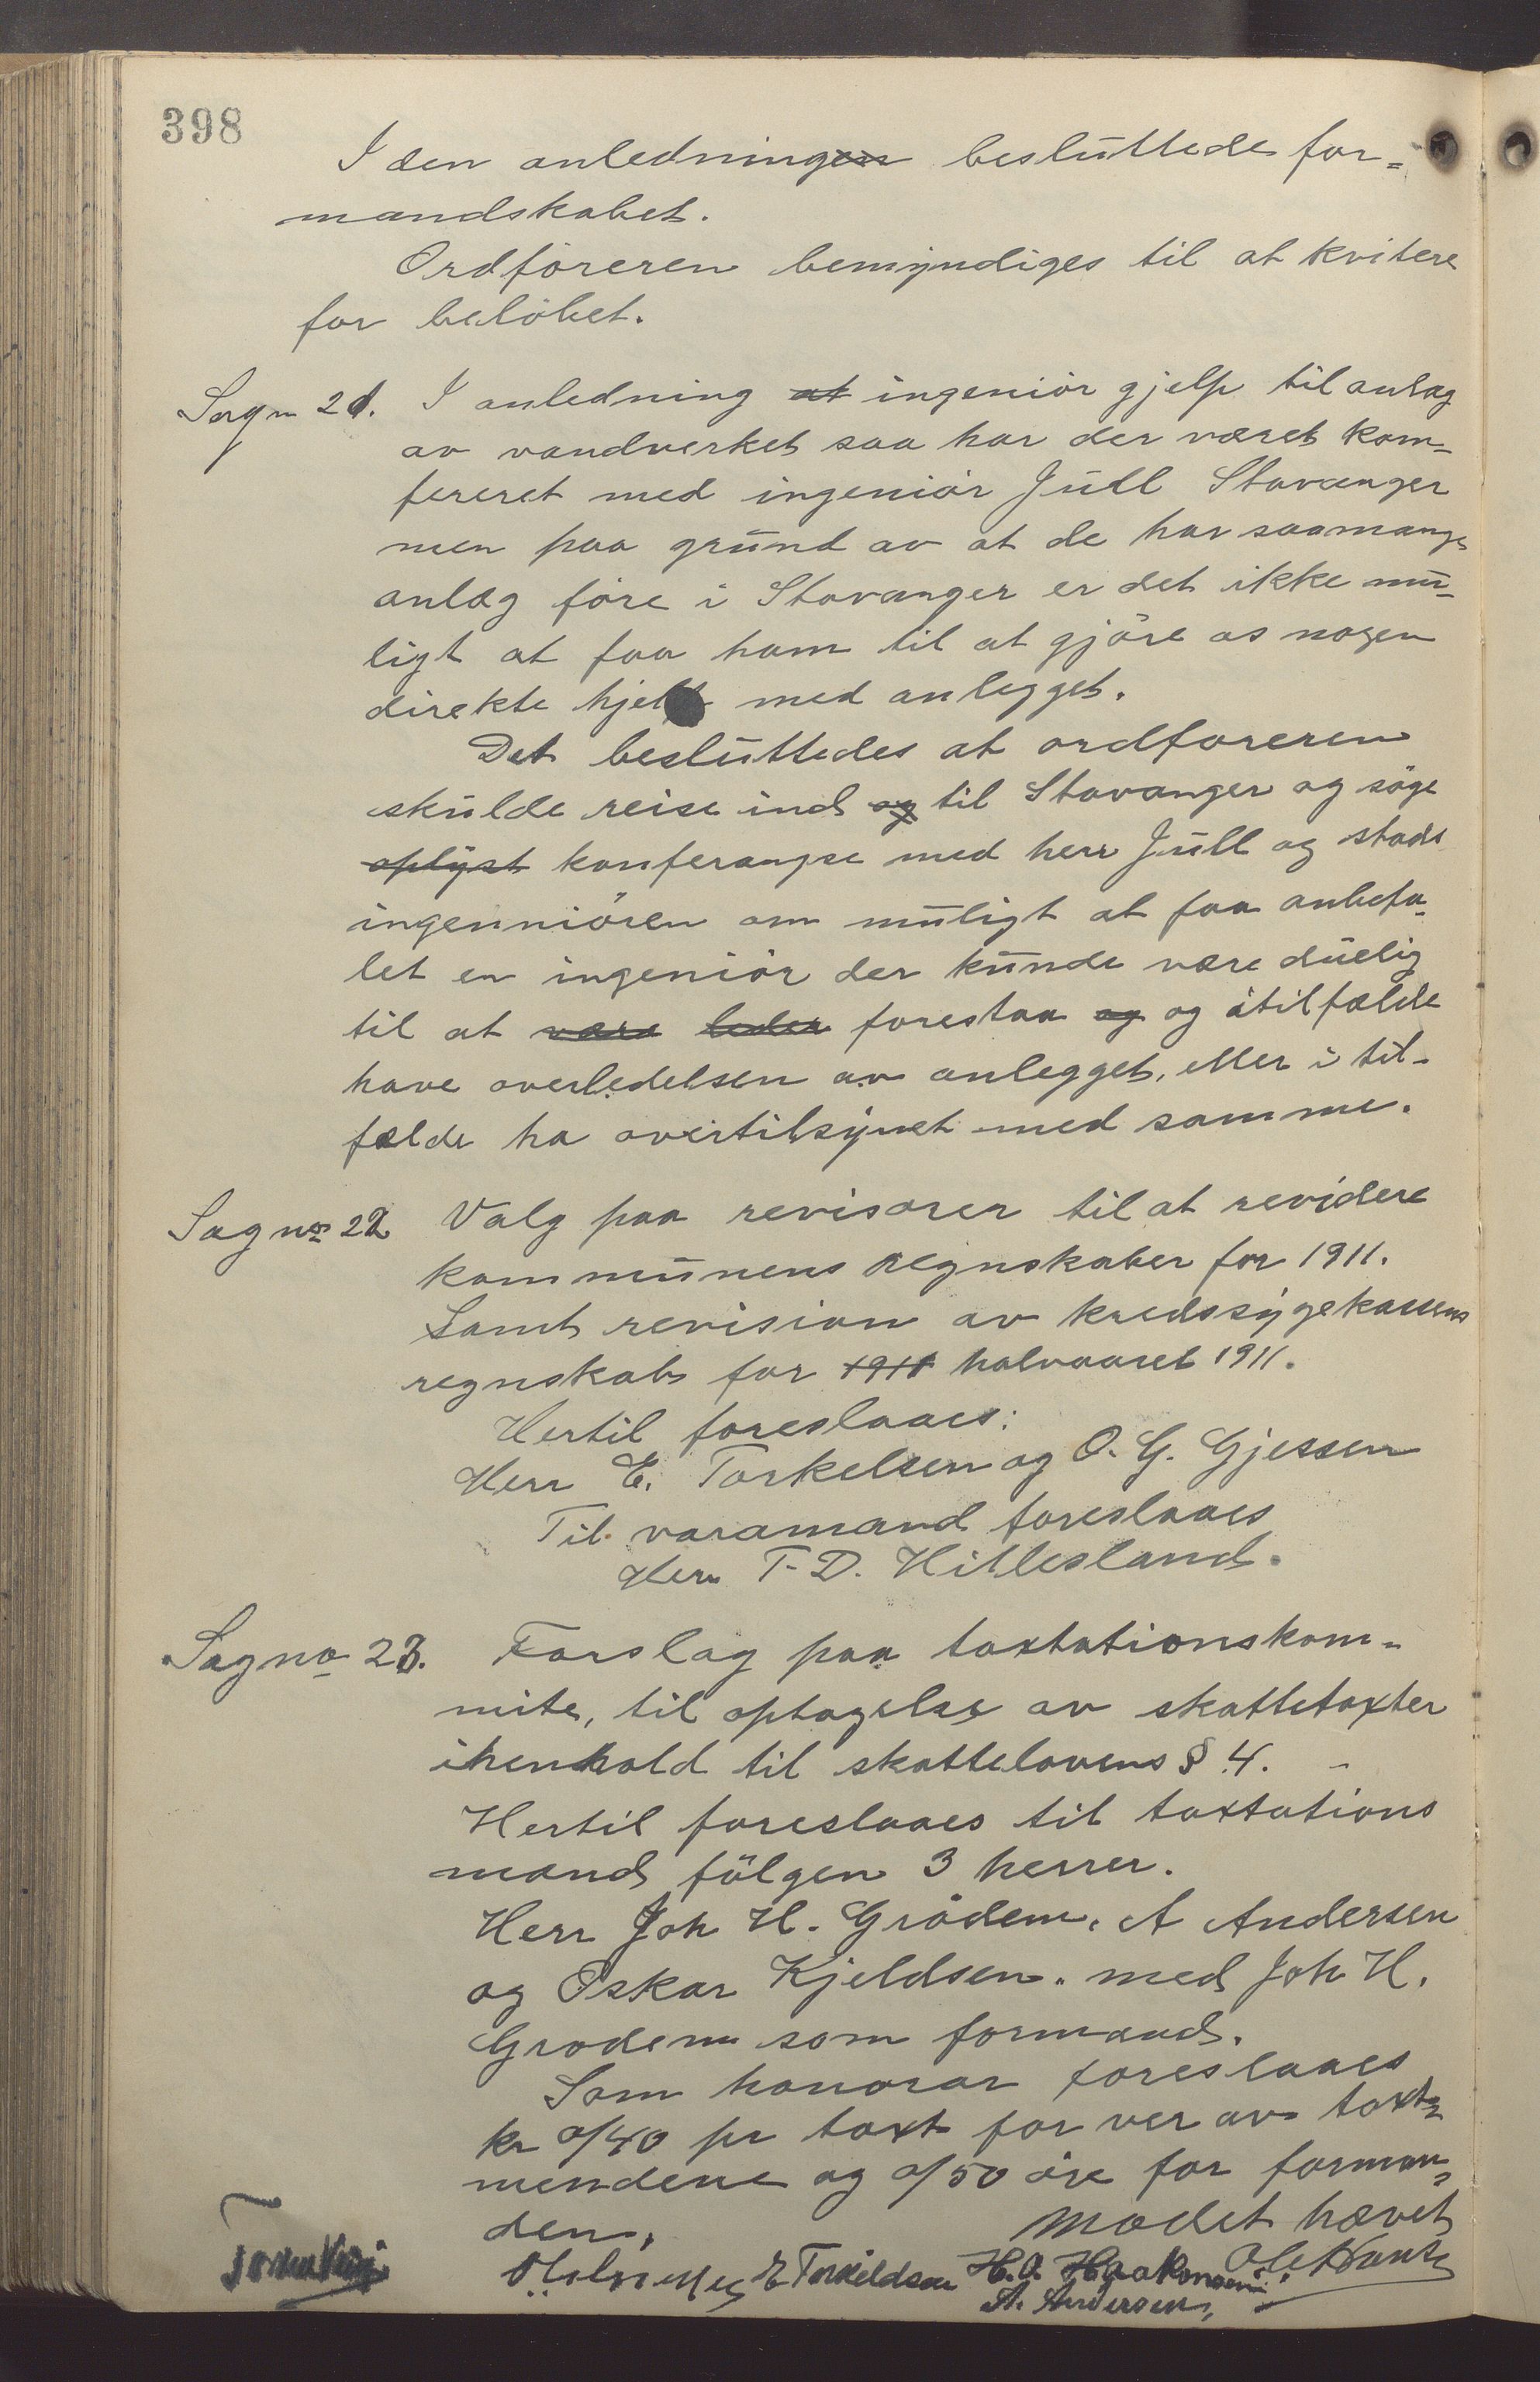 398
I den anledningen besluttede for=
mandskabet.
Ordföreren bemyndiges til at kvitere
for belöbet.
Sag n 21. I anledning at ingeniör gjelp til anlæg
av vandverket saa har der været kom-
fereret med ingeniör Juell Stavanger
men paa grund av at de har saamange
anlæg före i Stavanger er det ikke mu-
ligt at faa ham til at gjöre os nogen
direkte hjelp med anlegget.
Det besluttedes at ordföreren
skulde reise ind og til Stavanger og söge
oplyst konferangse med herr Jull og stads
ingenniören om muligt at faa anbefa-
let en ingeniör der kunde være duelig
til at være leder forestaa og og itilfælde
have overledelsen av anlegget, eller i til-
fælde ha overtilsynet med samme.
Sag no 22 Valg paa revisorer til at revidere
kommunens regnskaber for 1911.
Samt revision av kredssygekassens
regnskab for 1911 halvaaret 1911.
Hertil foreslaaes:
Herr E. Torkelsen og O. G. Gjessen
Til varamand foreslaaes
Herr T. D. Hillesland.
Sag no 23. Forslag paa taxtationskom-
mite, til optagelse av skattetaxter
ihenhold til skattelovens § 4.
Hertil foreslaaes til taxtations
mænd fölgen 3 herrer.
Herr Joh H. Grödem, A Andersen
og Oskar Kjeldsen. med Joh H.
Grodem som formand.
Som honorar foreslaaes
kr 0/40 pr taxt for ver av taxt=
mendene og 0/50 öre for forman=
den,
Modet hævet
E Torkeldsen H. O. Haakonsen
A. Andersen,